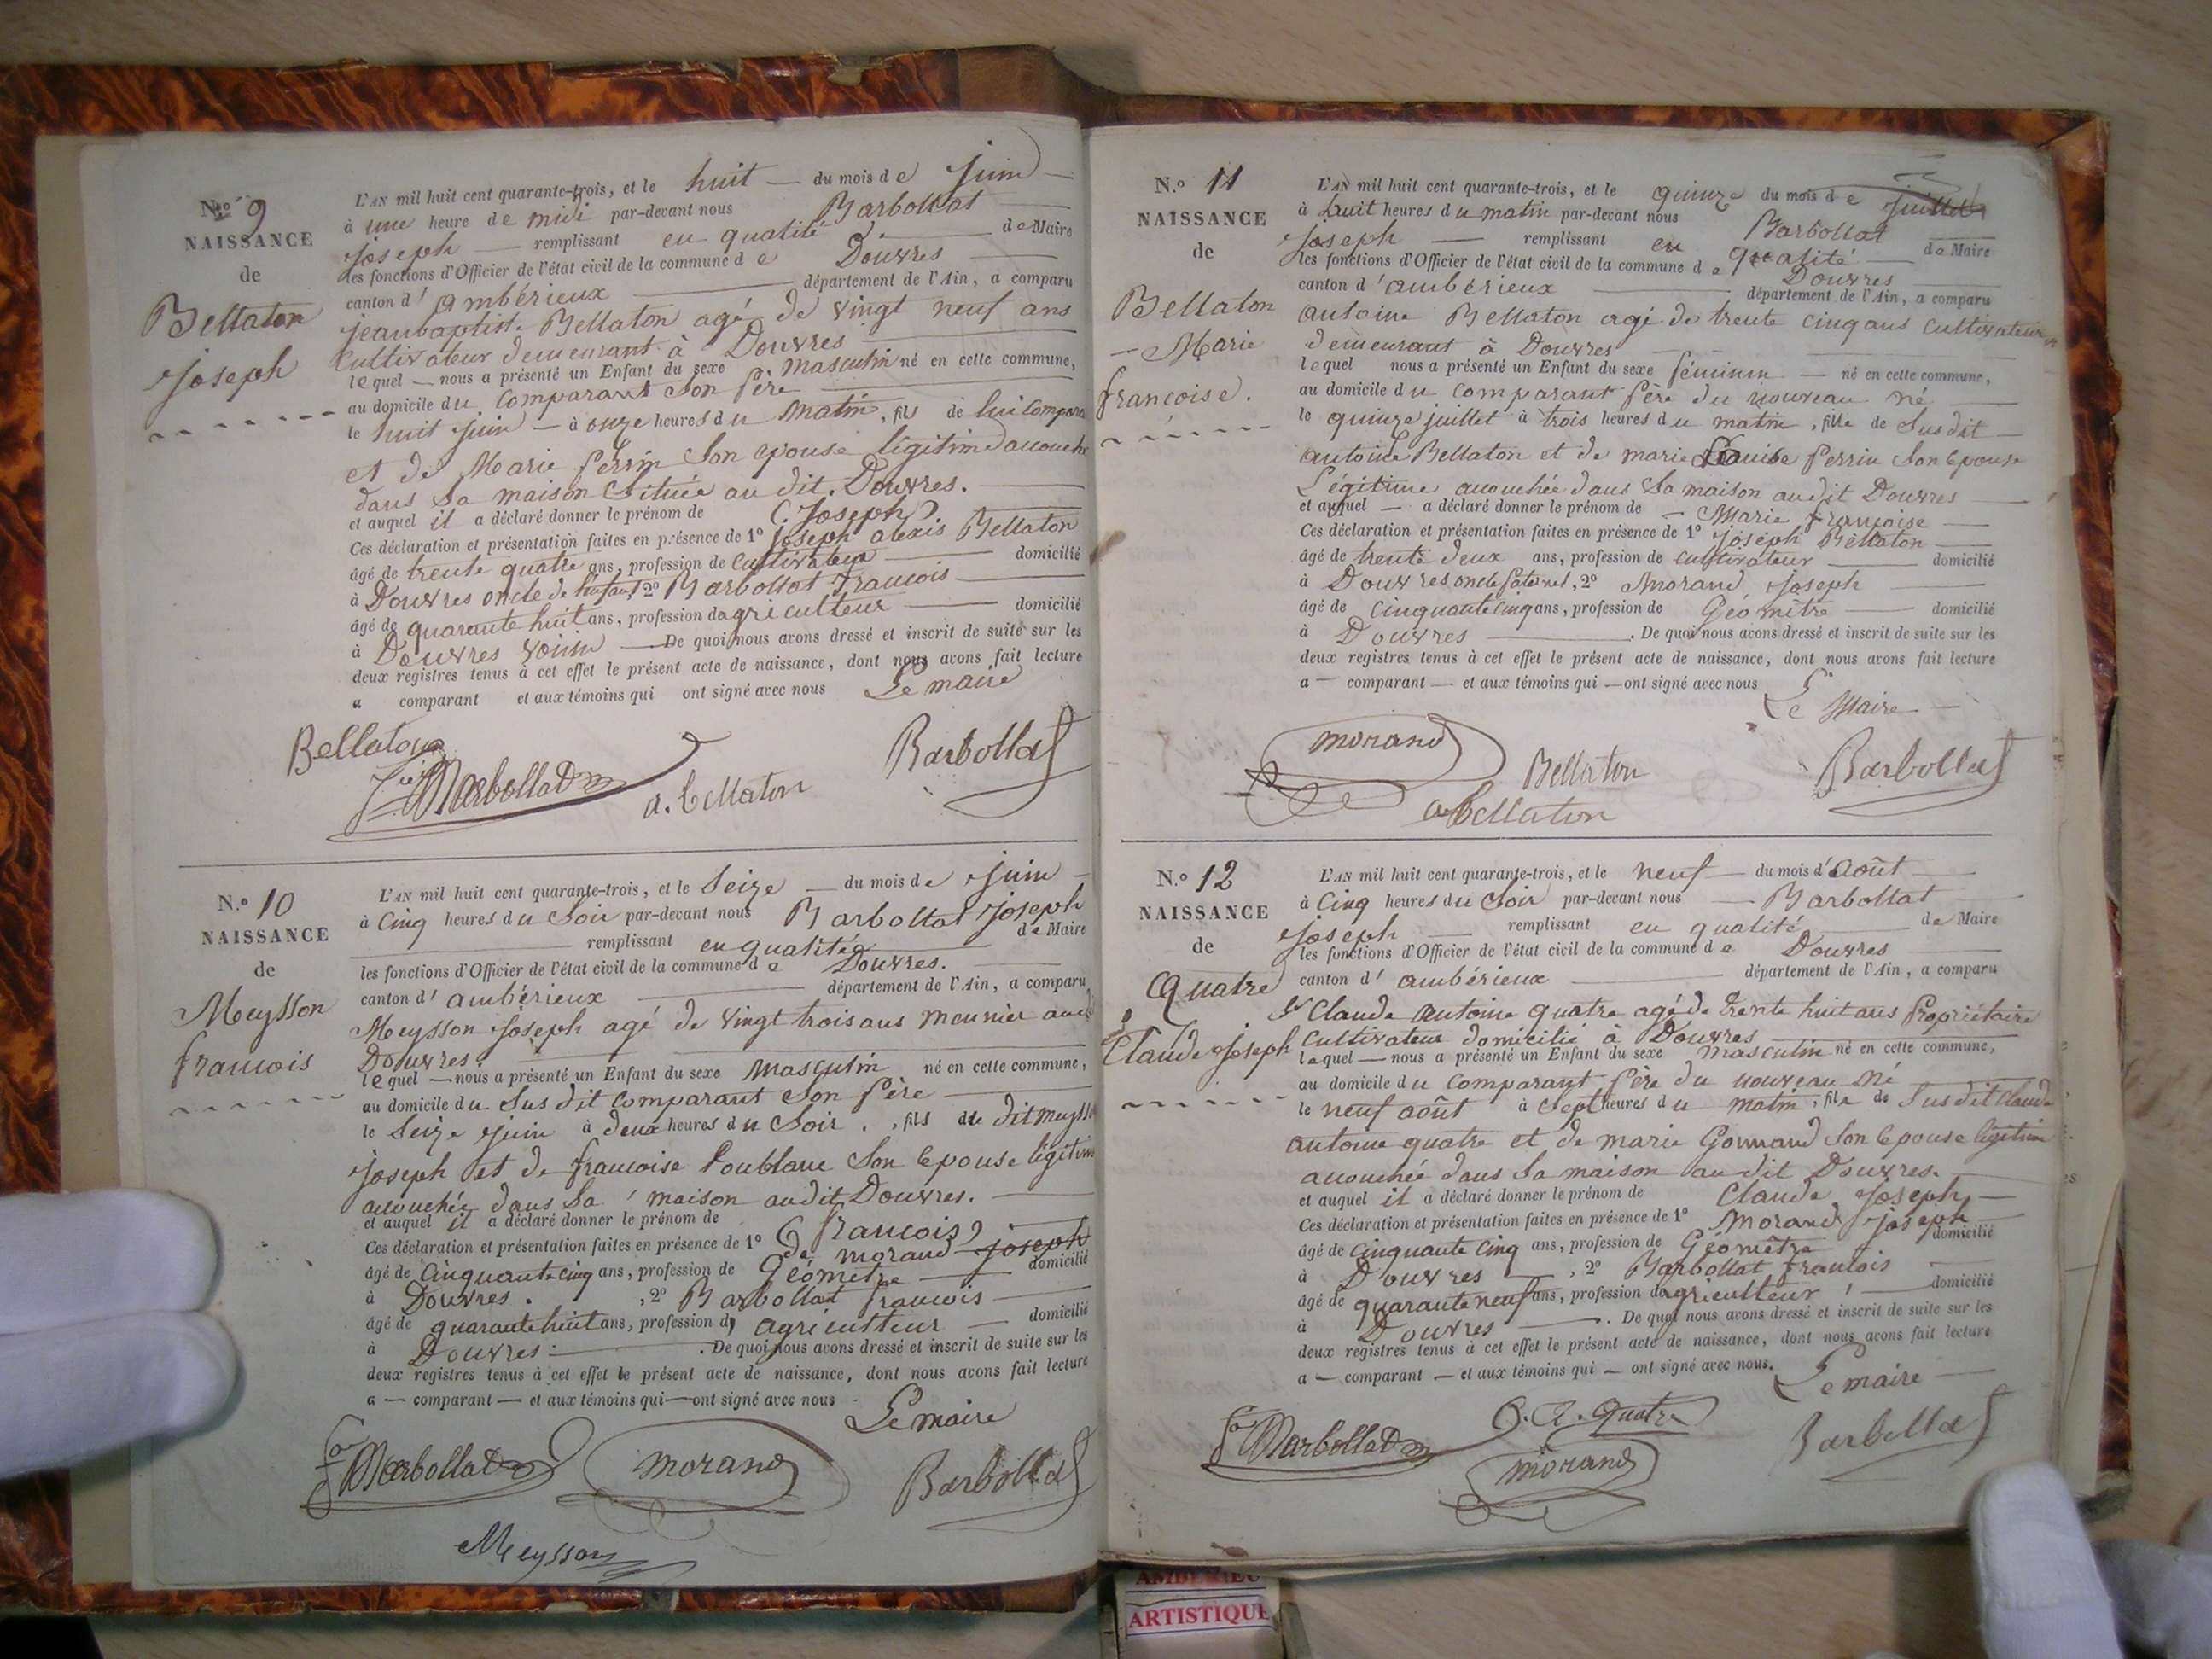 N.° 9
NAISSANCE
de
Bellaton
Joseph
L'AN mil huit cent quarante-trois, et le huit — du mois de Juin —
à une heure de midi par-devant nous Barbollat
Joseph — remplissant en qualité de Maire
les fonctions d'Officier de l'état civil de la commune de Douvres
canton d'ambérieux — département de l'Ain, a comparu
jeanbaptiste Bellaton agé de vingt neuf ans
Cultivateur demeurant à Douvres
lequel — nous a présenté un Enfant du sexe masculin né en cette commune,
au domicile du Comparant Son père
le huit Juin — à onze heures du matin, fils de lui Compara
et de Marie perrin Son epouse légitime accouché
dans Sa maison Située au dit Douvres.
et auquel il a déclaré donner le prénom de (Joseph).
Ces déclaration et présentation faites en présence de 1° Joseph alexis Bellaton
âgé de trente quatre ans, profession de Cultivateur — domicilié
à Douvres oncle de l'enfant, 2° Barbollat francois
âgé de quarante huit ans, profession dagriculteur — domicilié
à Douvres voisin — De quoi nous avons dressé et inscrit de suite sur les
deux registres tenus à cet effet le présent acte de naissance, dont nous avons fait lecture
a comparant et aux témoins qui ont signé avec nous Le maire
Bellaton
Barbollat
a. bellaton
Barbollat
N.° 10
NAISSANCE
de
Meysson
francois
L'AN mil huit cent quarante-trois, et le Seize — du mois de Juin —
à Cinq heures du Soir par-devant nous Barbollat Joseph
remplissant en qualité de Maire
les fonctions d'Officier de l'état civil de la commune de Douvres.
canton d'ambérieux — département de l'Ain, a comparu
Meysson Joseph agé de vingt trois ans meunier aud
Douvres.
lequel — nous a présenté un Enfant du sexe masculin né en cette commune,
au domicile du Susdit Comparant Son père
le Seize Juin à deux heures du Soir, fils du dit meysso
Joseph et de francoise Poublanc Son epouse légitim
accouchée dans Sa maison audit Douvres.
et auquel il a déclaré donner le prénom de (francois)
Ces déclaration et présentation faites en présence de 1° de morand Joseph
âgé de Cinquante cinq ans, profession de Géomètre — domicilié
à Douvres. , 2° Barbollat francois
âgé de quarante huit ans, profession d, agriculteur — domicilié
à Douvres — . De quoi nous avons dressé et inscrit de suite sur les
deux registres tenus à cet effet le présent acte de naissance, dont nous avons fait lecture
a — comparant — et aux témoins qui — ont signé avec nous
Le maire
Barbollat
morand
Barbollat
Meysson
N.° 11
NAISSANCE
de
Bellaton
— Marie
francoise.
L'AN mil huit cent quarante-trois, et le quinze du mois de Juillet
à huit heures du matin par-devant nous Barbollat
Joseph — remplissant en qualité — de Maire
les fonctions d'Officier de l'état civil de la commune de Douvres
canton d'ambérieux — département de l'Ain, a comparu
antoine Bellaton agé de trente cinq ans Cultivateur
demeurant à Douvres
lequel nous a présenté un Enfant du sexe féminin — né en cette commune,
au domicile du Comparant père du nouveau né
le quinze juillet à trois heures du matin, fille de Susdit —
antoine Bellaton et de marie Louise perrin Son epouse
Légitime accouchée dans Sa maison audit Douvres —
et auquel — a déclaré donner le prénom de — Marie françoise —
Ces déclaration et présentation faites en présence de 1° Joseph Bellaton —
âgé de trente deux ans, profession de cultivateur — domicilié
à Douvres oncle paternel, 2° Morand, Joseph
âgé de cinquante cinq ans, profession de Géomètre — domicilié
à Douvres — . De quoi nous avons dressé et inscrit de suite sur les
deux registres tenus à cet effet le présent acte de naissance, dont nous avons fait lecture
a — comparant — et aux témoins qui — ont signé avec nous
Le Maire —
morand
Bellaton
a bellaton
Barbollat
N.° 12
NAISSANCE
de
Quatre
Claude Joseph
L'AN mil huit cent quarante-trois, et le neuf — du mois d'Août —
à Cinq heures du Soir par-devant nous — Barbollat
Joseph — remplissant en qualité de Maire
les fonctions d'Officier de l'état civil de la commune de Douvres
canton d'ambérieux — département de l'Ain, a comparu
Sr Claude antoine quatre agé de trente huit ans Propriétaire
Cultivateur domicilié à Douvres
lequel — nous a présenté un Enfant du sexe masculin né en cette commune,
au domicile du Comparant père du nouveau né
le neuf août à Sept heures du matin, fils de Susdit Claude
antoine quatre et de marie Gormand Son epouse légitime
accouchée dans Sa maison au dit Douvres.
et auquel il a déclaré donner le prénom de Claude Joseph —
Ces déclaration et présentation faites en présence de 1° Morand Joseph
âgé de cinquante cinq ans, profession de Géomètre domicilié
à Douvres — , 2° Barbollat francois
âgé de quarante neuf ans, profession dagriculteur — domicilié
à Douvres — . De quoi nous avons dressé et inscrit de suite sur les
deux registres tenus à cet effet le présent acte de naissance, dont nous avons fait lecture
a — comparant — et aux témoins qui — ont signé avec nous.
Le maire —
Barbollat
C. A. Quatre
morand
Barbollat
AMBERIEU
ARTISTIQUE